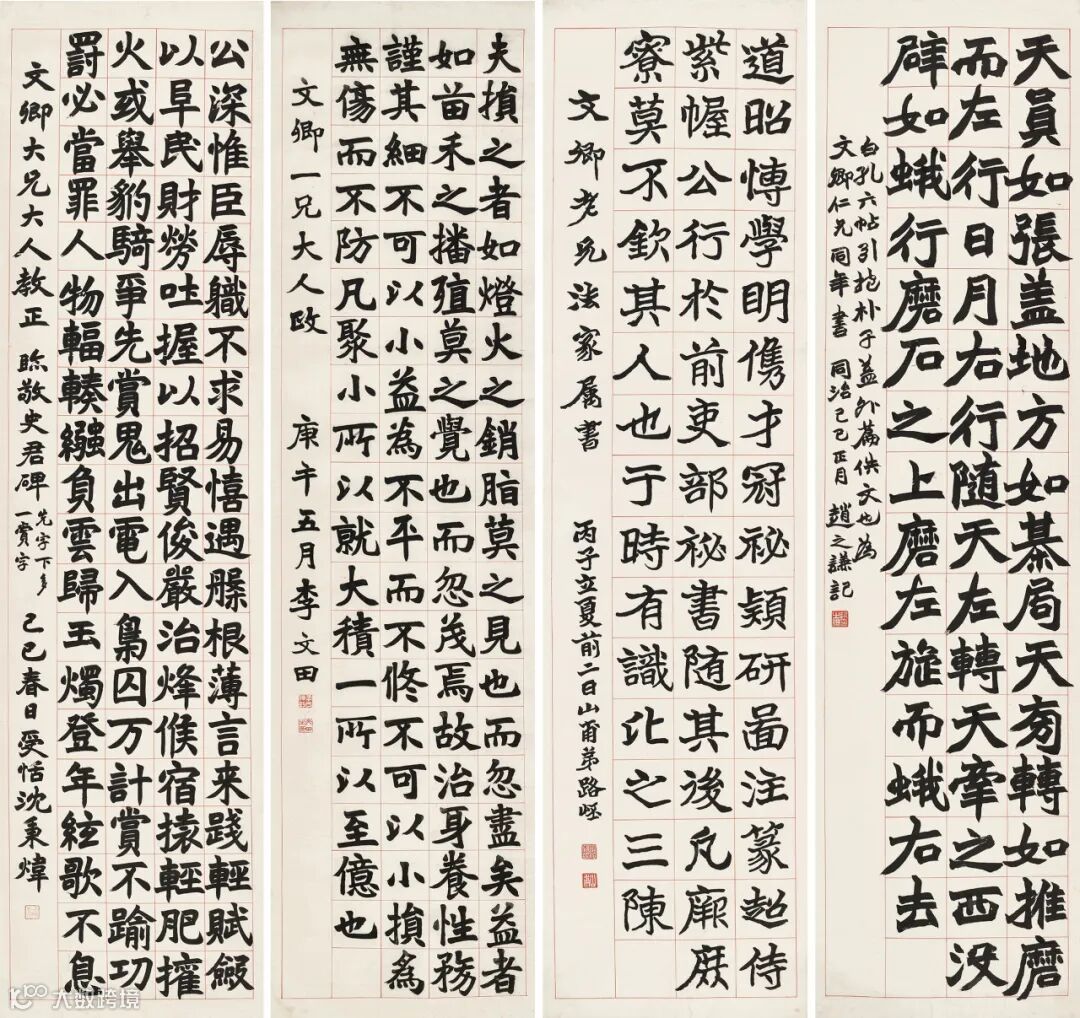 天員如張盖地方如棊局天旁轉如推磨
而左行日月右行随天左轉天牽之西没
辟如蛾行磨石之上磨左旋而蛾右去
白孔六帖引抱朴子蓋外篇佚文也為
文卿仁兄同年書 同治己巳正月 趙之謙記
道昭博學明儁才冠祕穎研啚注篆超侍
紫幄公行於前吏部祕書随其後凡厥庶
寮莫不欽其人也于時有識比之三陳
文卿老兄法家属書 丙子立夏前二日山甫弟路岯
夫損之者如燈火之銷脂莫之見也而忽盡矣益者
如苗禾之播殖莫之覺也而忽茂焉故治身養性務
謹其細不可以小益為不平而不修不可以小損為
無傷而不防凡聚小所以就大積一所以至億也
文卿一兄大人政 庚午五月李文田
公深惟臣辱軄不求易憘遇滕根薄言来踐輕賦斂
以阜民財勞吐握以招賢俊嚴治烽候宿援輕肥擁
火或舉豹騎爭先賞鬼出電入梟囚万計賞不踰功
罰必當罪人物輻輳繈負雲歸玉燭登年絃歌不息
文卿大兄大人教正 臨敬史君碑 先字下多一賞字 己巳春日受恬沈秉煒
大数跨境